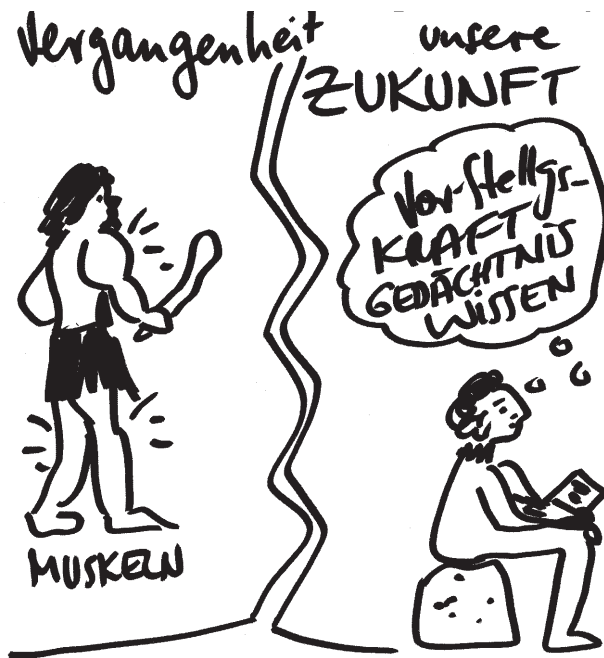 Vergangenheit
unsere
ZUKUNFT
Vor-stellgs-
KRAFT
GEDÄCHTNIS
WISSEN
MUSKELN